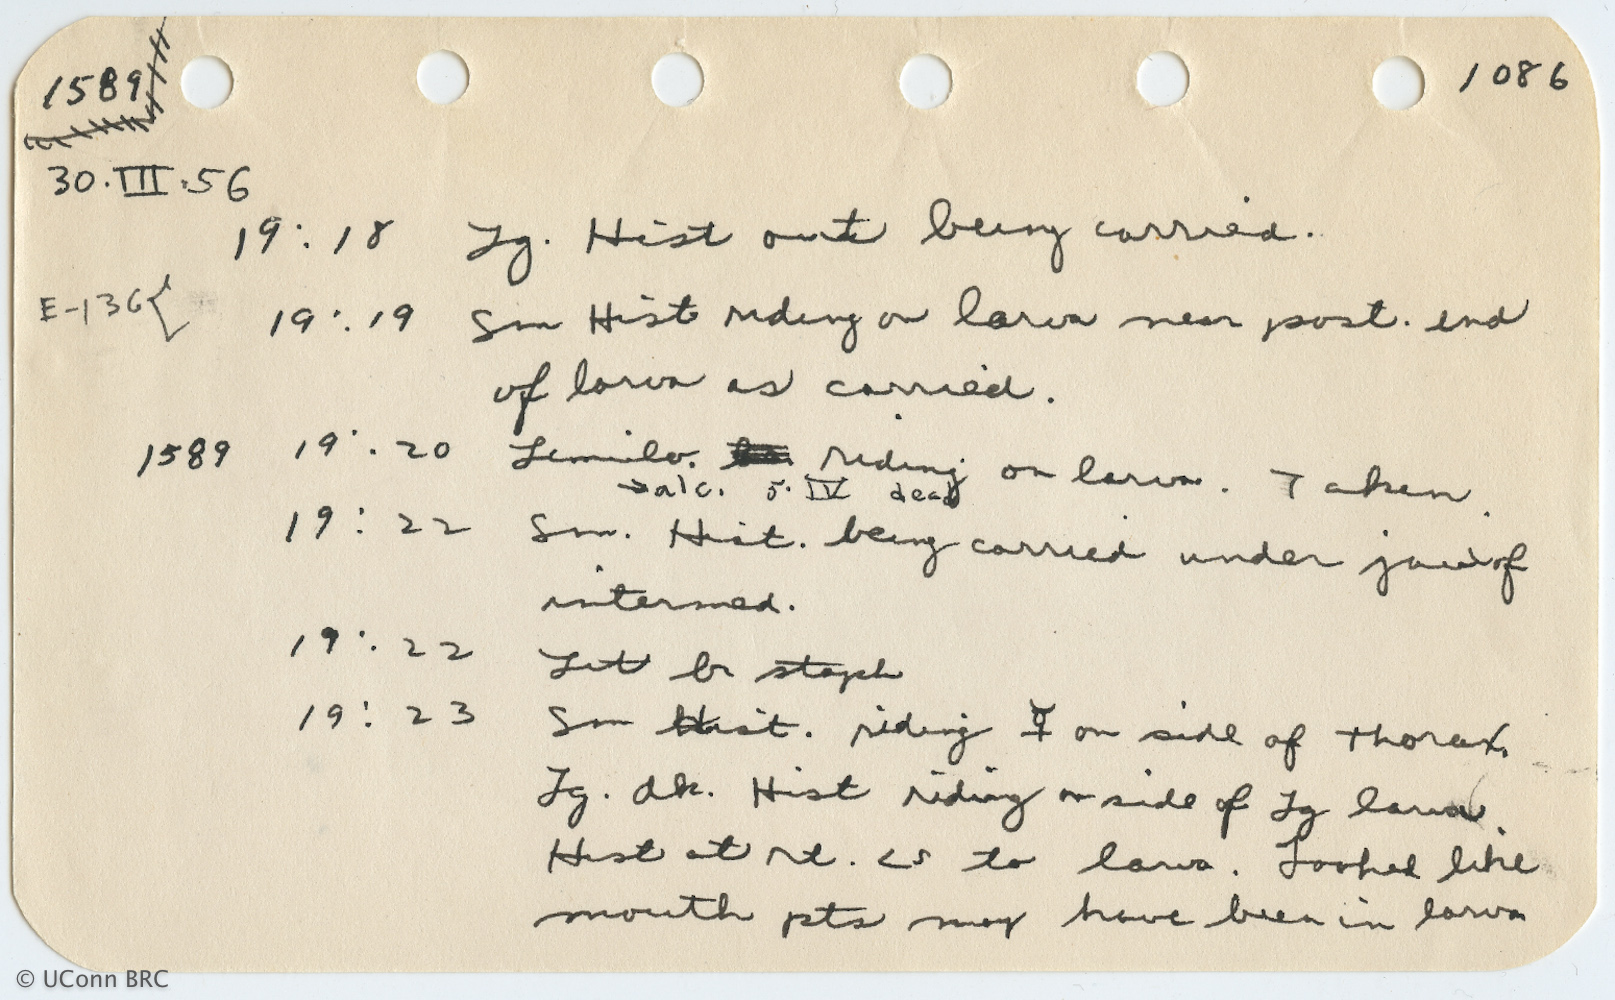 1589
1086
30.III.56
19:18 Lg. Hist out being carried.
E-136{
19:19 Sm Hist riding on larva near post. end
of larva as carried.
1589 19:20 Limulo. riding on larva. Taken.
→alc. 5.IV dead
19:22 Sm. Hist. being carried under jaw of
intermed.
19:22 Lit br staph
19:23 Sm Hist. riding ☿ on side of thorax.
Lg. dk. Hist riding on side of Lg larva.
Hist at rt. <s to larva. Looked like
mouth pts may have been in larva
© UConn BRC